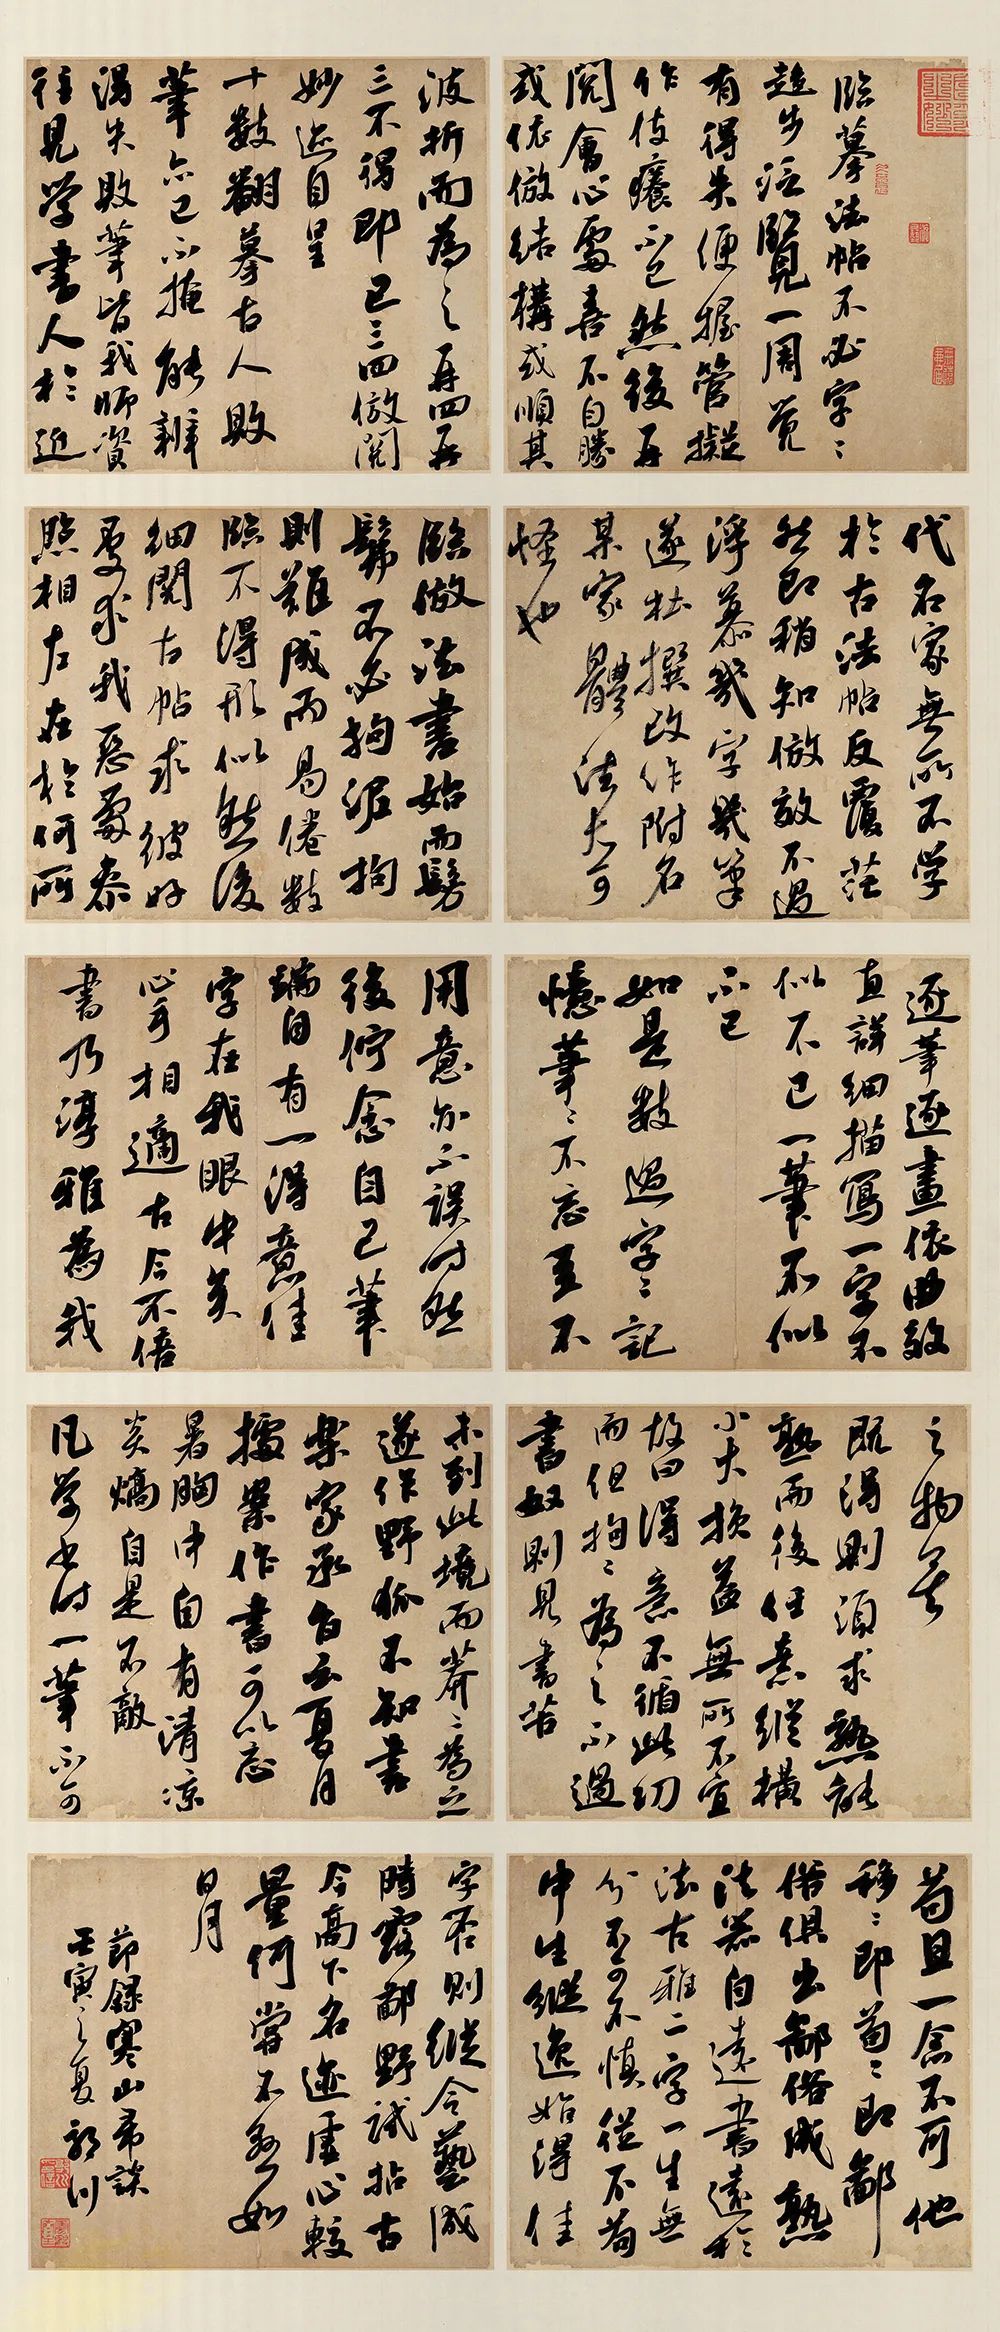 臨摹法帖不必字〻
趂步泛覽一周覺
有得失便握管擬
作伎癢不已然後再
閱會心處喜不自勝
或依倣結構或順其
波折而為之再四再
三不得即已三四倣閱
妙迹自呈
十數翻摹古人敗
筆亦已不掩能辨
得失敗筆皆我師資
往見學書人於近
代名家無所不學
於古法帖反覆茫
然即稍知倣效不過
浮慕幾字幾筆
遂杜撰改作附名
某家體法大可
怪也
臨倣法書始而髣
髴不必拘泥拘
則難成而易倦數
臨不得形似然後
細閱古帖求彼好
處求我惡處參
照相左在於何所
逐筆逐畫依曲效
直詳細描寫一字不
似不已一筆不似
不已
如是數過字〻記
憶筆〻不忘並不
用意亦不誤時然
後佇念自己筆
端自有一得意佳
字在我眼中矣
心手相適古今不倍
書乃淳雅為我
之物矣
既得則須求熟能
熟而後任意縱橫
小大損益無所不宜
故曰得意不循此切
而但拘〻為之不過
書奴則見書苦
未到此境而莽〻為之
遂作野狐不知書
樂家承旨云夏月
據案作書可以忘
暑胸中自有清涼
炎熇自是不敵
凡學書時一筆不可
苟且一念不可他
移〻即苟〻即鄙
俗俱出鄙俗成熟
法器自遠書遠於
法古雅二字一生無
分不可不慎從不苟
中生縱逸始得佳
字否則縱令藝成
時露鄙野試拈古
今高下名迹虛心較
量何嘗不懸如
日月
節錄寒山帚談
壬寅之夏